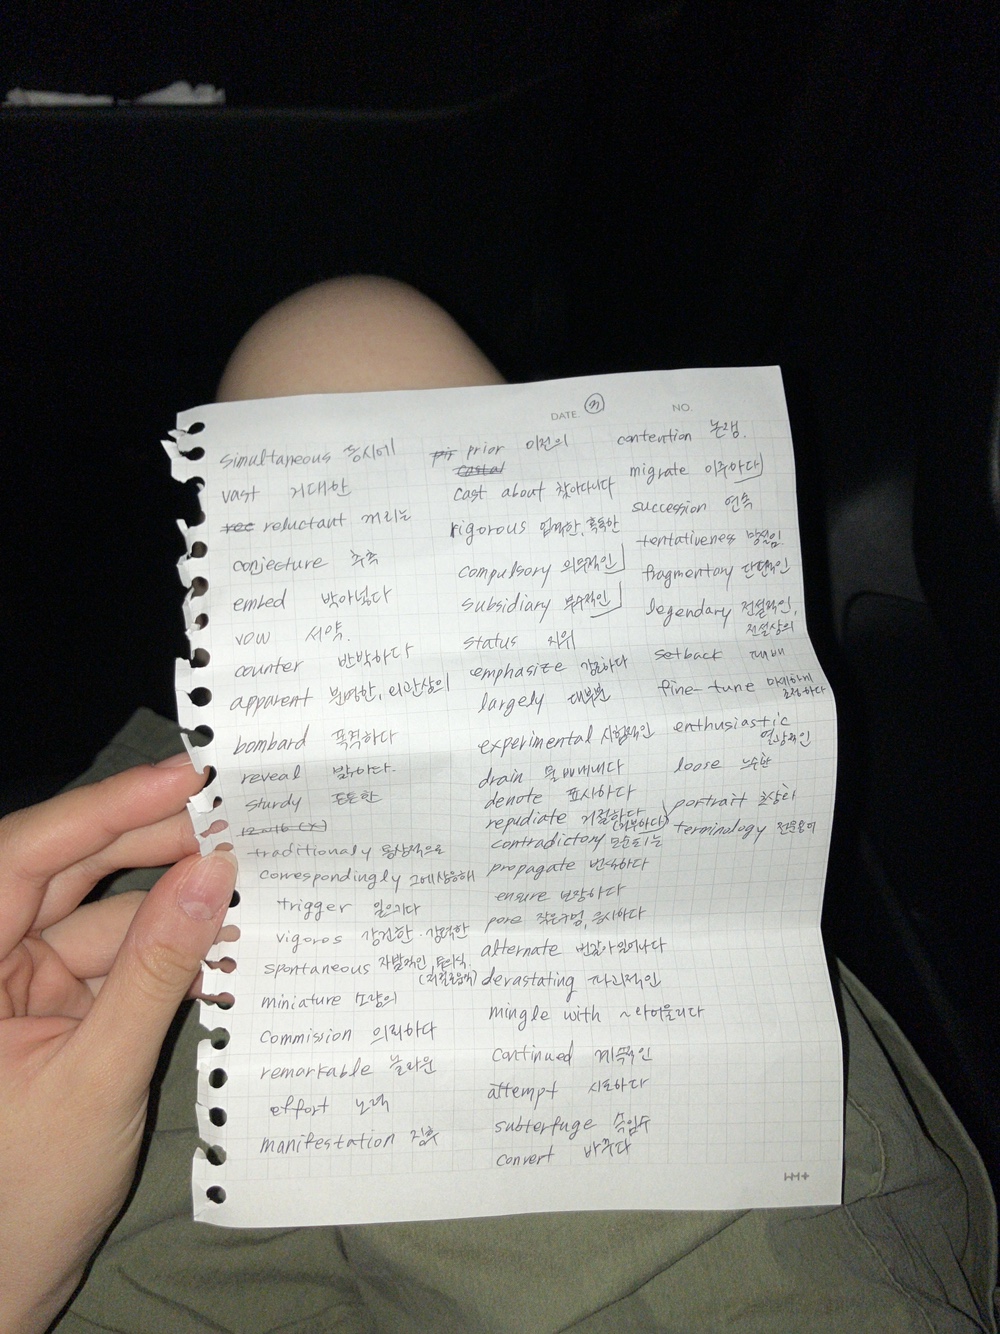 DATE. NO.
simultaneous 동시에
vast 거대한
reluctant 꺼리는
conjecture 추측
embed 박아넣다
vow 서약.
counter 반박하다
apparent 분명한, 외관상의
bombard 폭격하다
reveal 밝히다.
sturdy 튼튼한
12~16 (X)
traditionaly 통상적으로
correspondingly 그에상응해
trigger 일으키다
vigoros 강건한·강력한
spontaneous 자발적인, 무의식.
miniature 소량의
commission 의뢰하다
remarkable 놀라운
effort 노력
manifestation 징후
prior 이전의
cast about 찾아다니다
rigorous 엄격한, 혹독한
compulsory 의무적인
subsidiary 부수적인
status 지위
emphasize 강조하다
largely 대부분
experimental 시험적인
drain 물 빼내다
denote 표시하다
repudiate 거절하다
(거부하다)
contradictory 모순되는
propagate 번식하다
ensure 보장하다
pore 작은구멍, 응시하다
alternate 번갈아일어나다
devastating 파괴적인
mingle with ~와어울리다
continued 계속적인
attempt 시도하다
subterfuge 속임수
convert 바꾸다
contention 논쟁.
migrate 이주하다
succession 연속
tentativeness 망설임
fragmentary 단편적인
legendary 전설적인,
전설상의
setback
fine-tune 미세하게
조정하다
enthusiastic
열광적인
loose 느슨한
portrait 초상화
terminology 전문용어